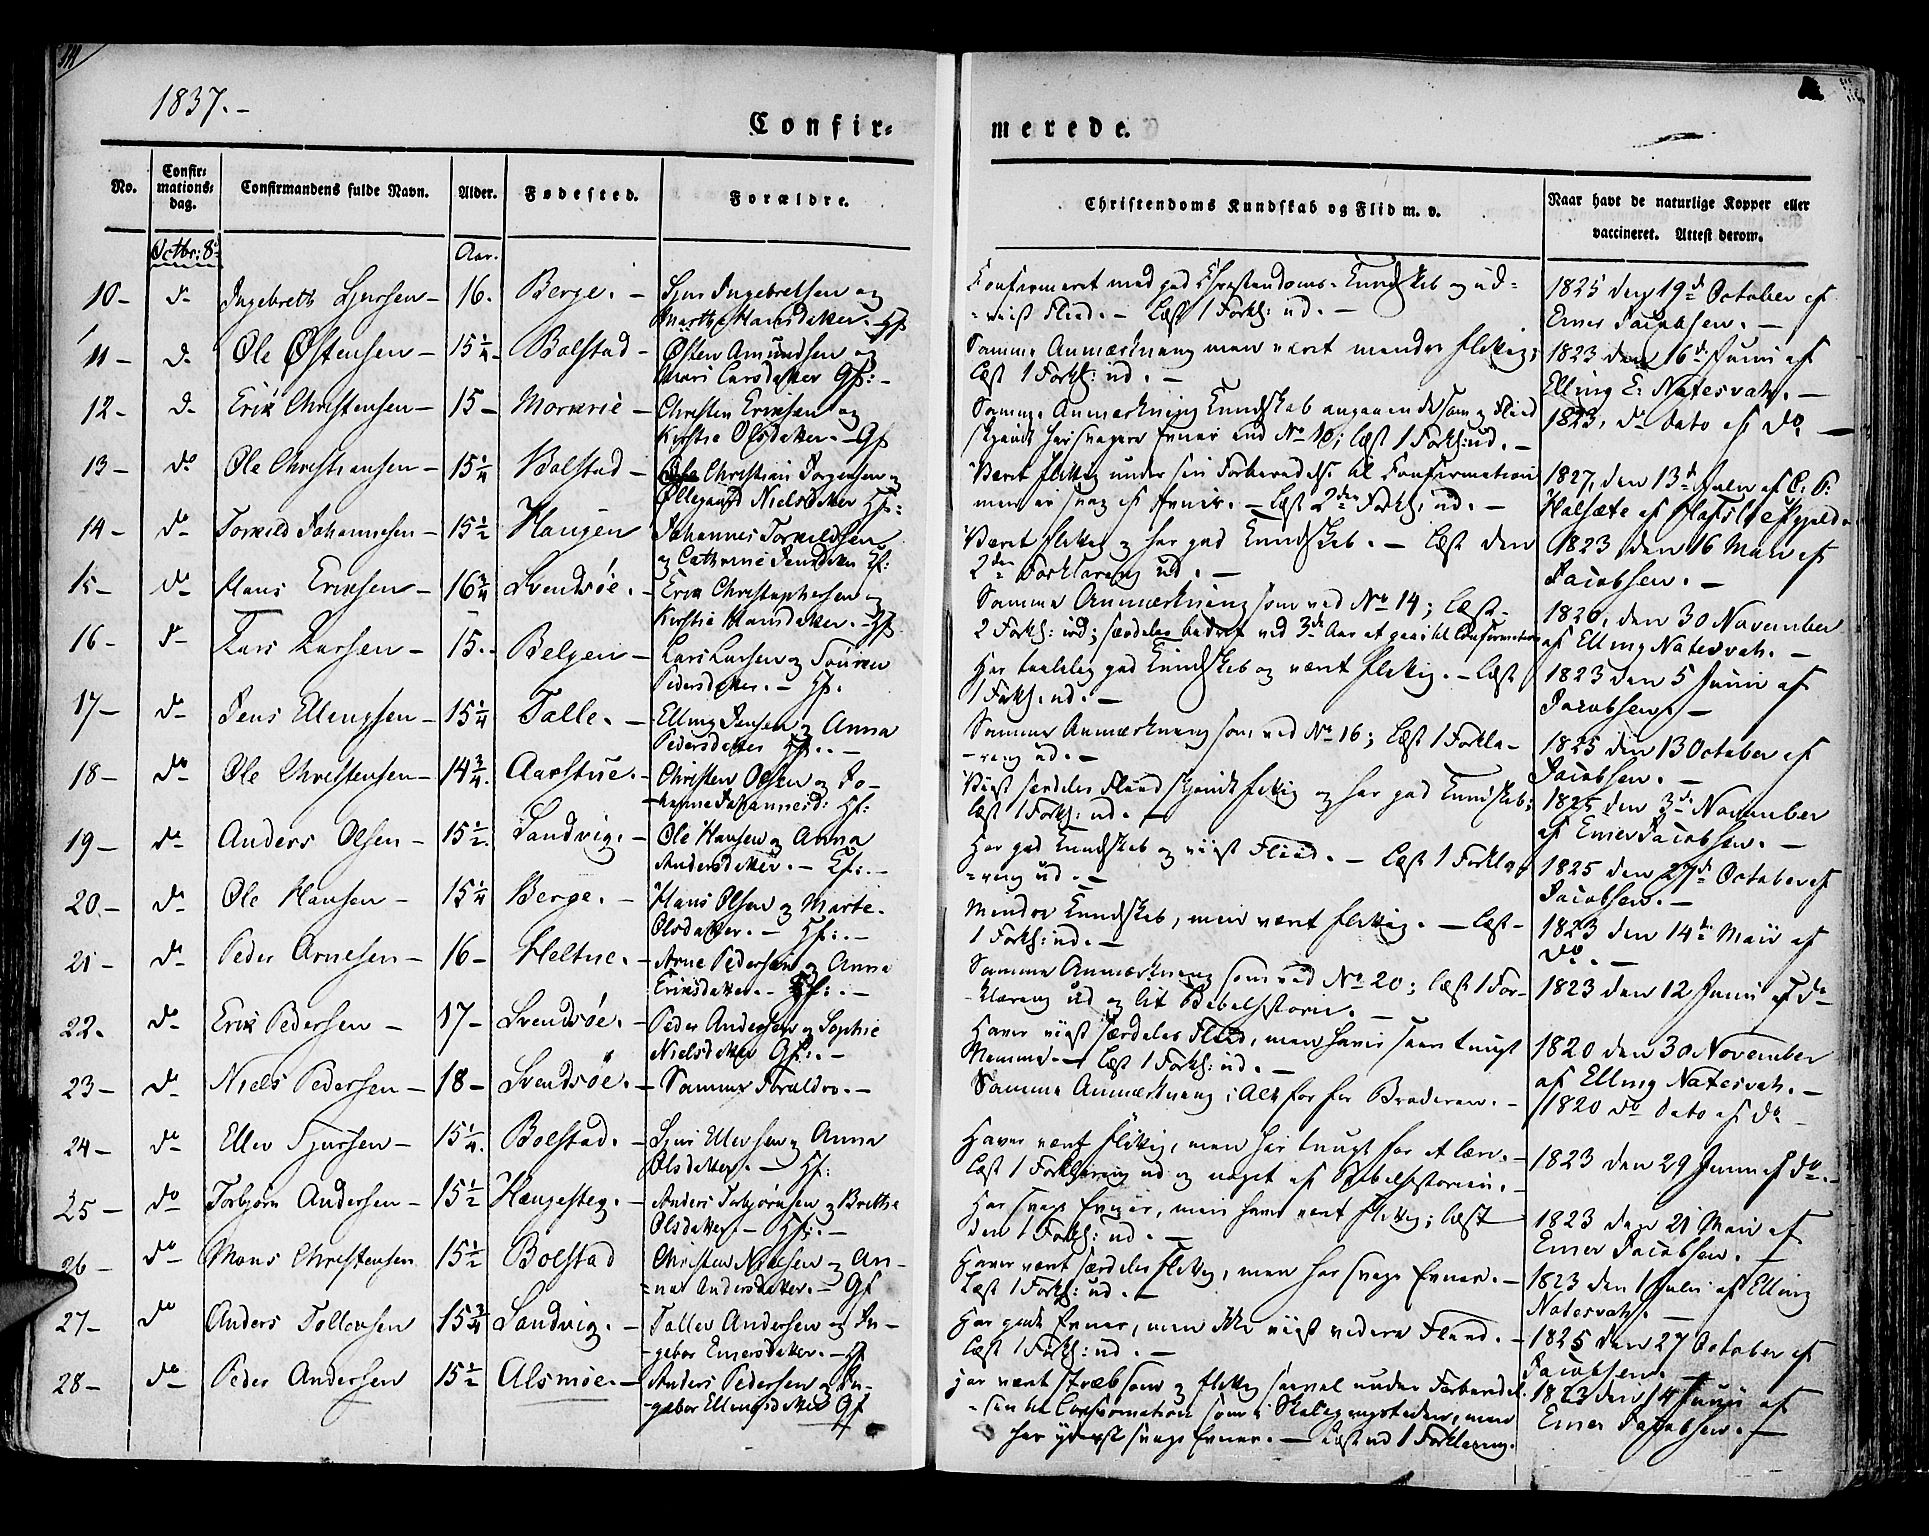 1837.-
Confir-
merede.
No.
Confir-
mations-
dag.
Confirmandens fulde Navn.
Alder.
Fødested.
Forældre.
Christendoms Kundskab og Flid m. v.
Naar havt de naturlige Kopper eller
vaccineret. Attest derom.
Octbr: 8de
Aar.
10- do Ingebreth Sjursen- 16. Berge. - Sjur Ingebretsen og
Marthe Hansdatter. Hf.
Confirmeret med god Christendoms-Kundskab og ud-
-viist Fliid. - Læst 1 Forkl: ud. -
1825 den 19de October af
Emer Jacobsen. -
11- do Ole Østensen- 15 1/4. Bolstad- Østen Amundsen og
Mari Larsdatter Gf:-
Samme Anmærkning men været mindre flittig;
læst 1 Forkl: ud. -
1823 den 16de Junii af
Elling E. Natesvah. -
12- do Erik Christensen- 15- Morkrie- Christen Eriksen og
Kirstie Olsdatter. - Gf
Samme Anmærkning Kundskab angaaende som og Fliid
skjøndt har svagere Evner end No 10; læst 1 Forkl: ud. -
1823, do dato af do -
13- do Ole Christiansen- 15 1/4 Bolstad- Christian Jørgensen og
Øllegaard Nielsdatter Hf:
Været flittig under sin Forberedelse til Confirmation
men er svag af Evner. - Læst 2den Forkl: ud. -
1827, den 13de Julii af C. P.
Halsæte af Hafsloe
14- do Torkild Johannesen- 15 1/2 Haugen Johannes Torkildsen
og Cathrine Jensdatter Hf:
Været flittig og har god Kundskab. - Læst den
2den Forklaring ud. -
1823 den 16 Maii af
Jacobsen. -
15- do Hans Eriksen- 16 3/4 Svendsøe. - Erik Christophersen og
Kirstie Hansdatter. - Hf
Samme Anmærkning som ved No 14; læst-
2 Forkl: ud; særdeles bedret ved 3die Aar at gaae til Confirmation
1820, den 30 November
af Elling Natesvah. -
16- do Lars Larsen- 15.- Belgen- Lars Larsen og Sønneva
Pedersdatter. - Hf.
Har taalelig god Kundskab og været flittig. - Læst
1 Forkl. ud. -
1823 den 5 Junii af
Jacobsen. -
17- do Jens Ellingsen- 15 1/4 Talle. - Elling Jensen og Anna
Pedersdatter Hf.. -
Samme Anmærkning som ved No 16; læst 1 Forkla-
-ring ud. -
1825 den 13 October af
Jacobsen. -
18- do Ole Christensen- 14 3/4. Aarstue. - Christen Olsen og Jo-
-hanne Johannesd: Hf:
Viist særdeles Fliid skjøndt flittig og har god Kundskab;
læst 1 Forkl: ud. -
1825 den 3de November
af Emer Jacobsen. -
19- do Anders Olsen- 15 1/2. Sandvig. - Ole Hansen og Anna
Andersdatter. - Hf:. -
Har god Kundskab og viist Fliid. - Læst 1 Forkla-
-ring ud. -
1825 den 27de October af
Jacobsen. -
20.- do Ole Hansen- 15 1/4 Berge. - Hans Olsen og Marte-
Olsdatter. - Hf:. -
Mindre Kundskab, men været flittig. - Læst-
1 Forkl: ud. -
1823 den 14de Maii af
do. -
21- do Peder Arnesen- 16- Heltne. - Arne Pedersen og Anna
Eriksdatter. - Hf:. -
Samme Anmærkning som ved No 20; læst 1 For-
-klaring ud og lit Bibelhistorie. -
1823 den 12 Junii af do
22. do Erik Pedersen- 17- Svendsøe. - Peder Andersen og Sophie
Nielsdatter Gf:. -
Haver viist særdeles Fliid, men haver saare tungt
Nemme. - Læst 1 Forkl: ud. -
1820 den 30 November
af Elling Natesvah. -
23- do Niels Pedersen- 18- Svendsøe. - Samme Forældre. -
Samme Anmærkning i Alt for som Broderen. -
1820 do dato af do -
24- do Eller Sjursen- 15 1/4. Bolstad. - Sjur Ellersen og Anna
Olsdatter. - Hf:
Haver været flittig, men har tungt for at lære. -
læst 1 Forklaring ud og noget af Bibelhistorien. -
1823 den 29 Junii af do. -
25- do Torbjørn Andersen- 15 1/2 Haugesteg. - Anders Torbjørnsen og Brethe
Olsdatter. - Hf:. -
Har svage Evner, men haver været flittig; læst
den 1 Forkl: ud. -
1823 den 21 Maii af
Emer Jacobsen. -
26- do Mons Christensen 15 1/2 Bolstad Christen Nielsen og An-
-na Andersdatter. - Gf
Haver været særdeles flittig, men har svage Evner. -
læst 1 Forkl: ud. -
1823 den 1 Julii af Elling
Natesvah. -
27- do Anders Tollevsen 15 3/4 Sandvig. - Tollev Andersen og In-
-gebor Emersdatter. - Hf
Har gode Evner, men ikke viist videre Fliid. -
læst 1 Forkl: ud. -
1825 den 27 October af
Jacobsen. -
28- do Peder Andersen 15 1/2 Alsmoe. - Anders Pedersen og In-
-gebor Ellingsdatter Gf
Har været stræbsom og flittig saavel under Forberedel-
-sen til Confirmation som i Skolegangstiden, men
har yderst svage Evner. - Læst ud 1 Forklaring.
1823 den 14 Junii af
Emer Jacobsen. -